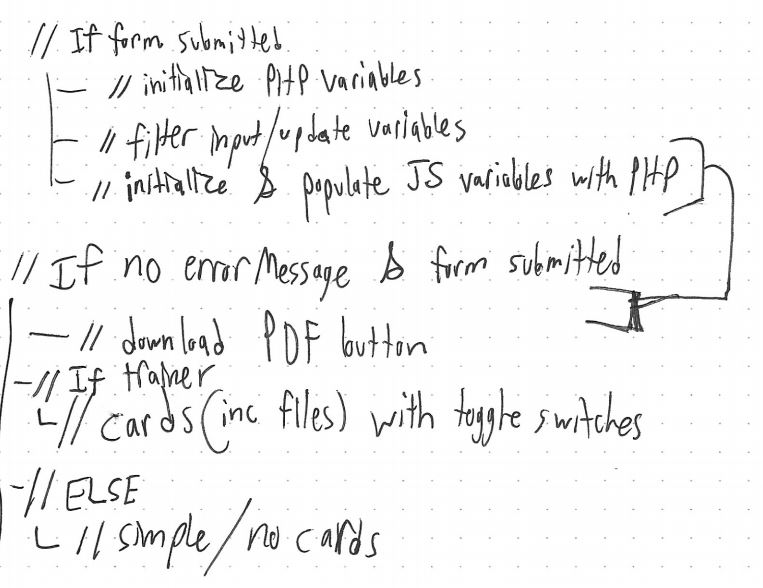 // If form submitted
// initialize PHP variables
// filter input/update variables
// initialize & populate JS variables with PHP
// If no errorMessage & form submitted
// download PDF button
// If trainer
// cards (inc files) with toggle switches
// ELSE
// simple/no cards